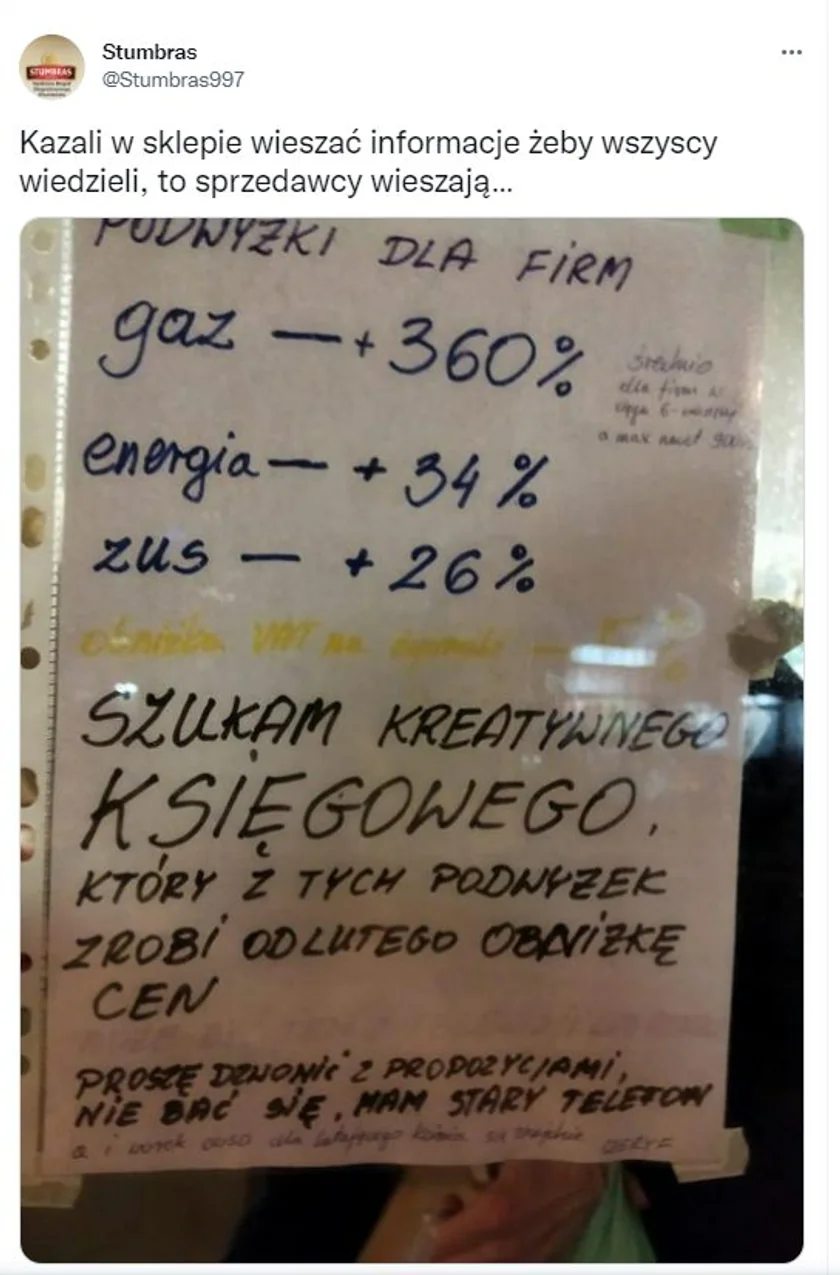 Stumbras
@Stumbras997
Kazali w sklepie wieszać informacje żeby wszyscy
wiedzieli, to sprzedawcy wieszają...
STUMBRAS
PODWYŻKI DLA FIRM
gaz — + 360%
średnio
dla firm w
6-
a max nawet
energia — + 34%
zus — + 26%
obniżka VAT na — 5%
SZUKAM KREATYWNEGO
KSIĘGOWEGO,
KTÓRY Z TYCH PODWYŻEK
ZROBI OD LUTEGO OBNIŻKĘ
CEN
PROSZĘ DZWONIĆ Z PROPOZYCJAMI,
NIE BAĆ SIĘ, MAM STARY TELEFON
a i worek owsa dla latającego konia się znajdzie